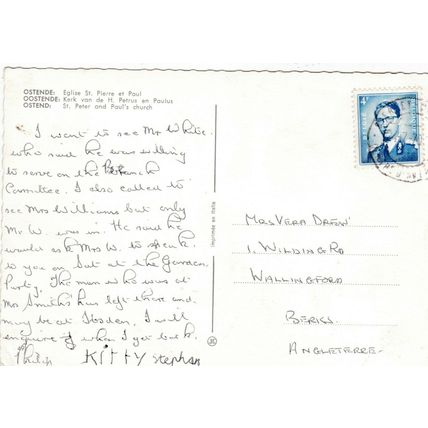 OSTENDE: Eglise St. Pierre et Paul
OOSTENDE: Kerk van de H. Petrus en Paulus
OSTEND: St. Peter and Paul's church
I want to see Mr White
who said he was willing
to serve on the Branch
Committee. I also called to
see Mrs Williams but only
Mr W. was in. He said he
would ask Mrs W. to speak
to you on Sat at the Garden
Party. The man who was at
Mrs Smith's has left there and
may be at Ibsden. I will
enquire when I get back.
Philip KITTY Stephen
Imprimée en Italie
4F
MRS VERA DREW
1, WILDING RD
WALLINGFORD
BERKS.
ANGLETERRE